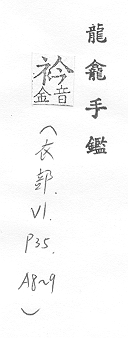 龍龕手鑑
衿 金音
(衣部. VI. P35. A8~9)